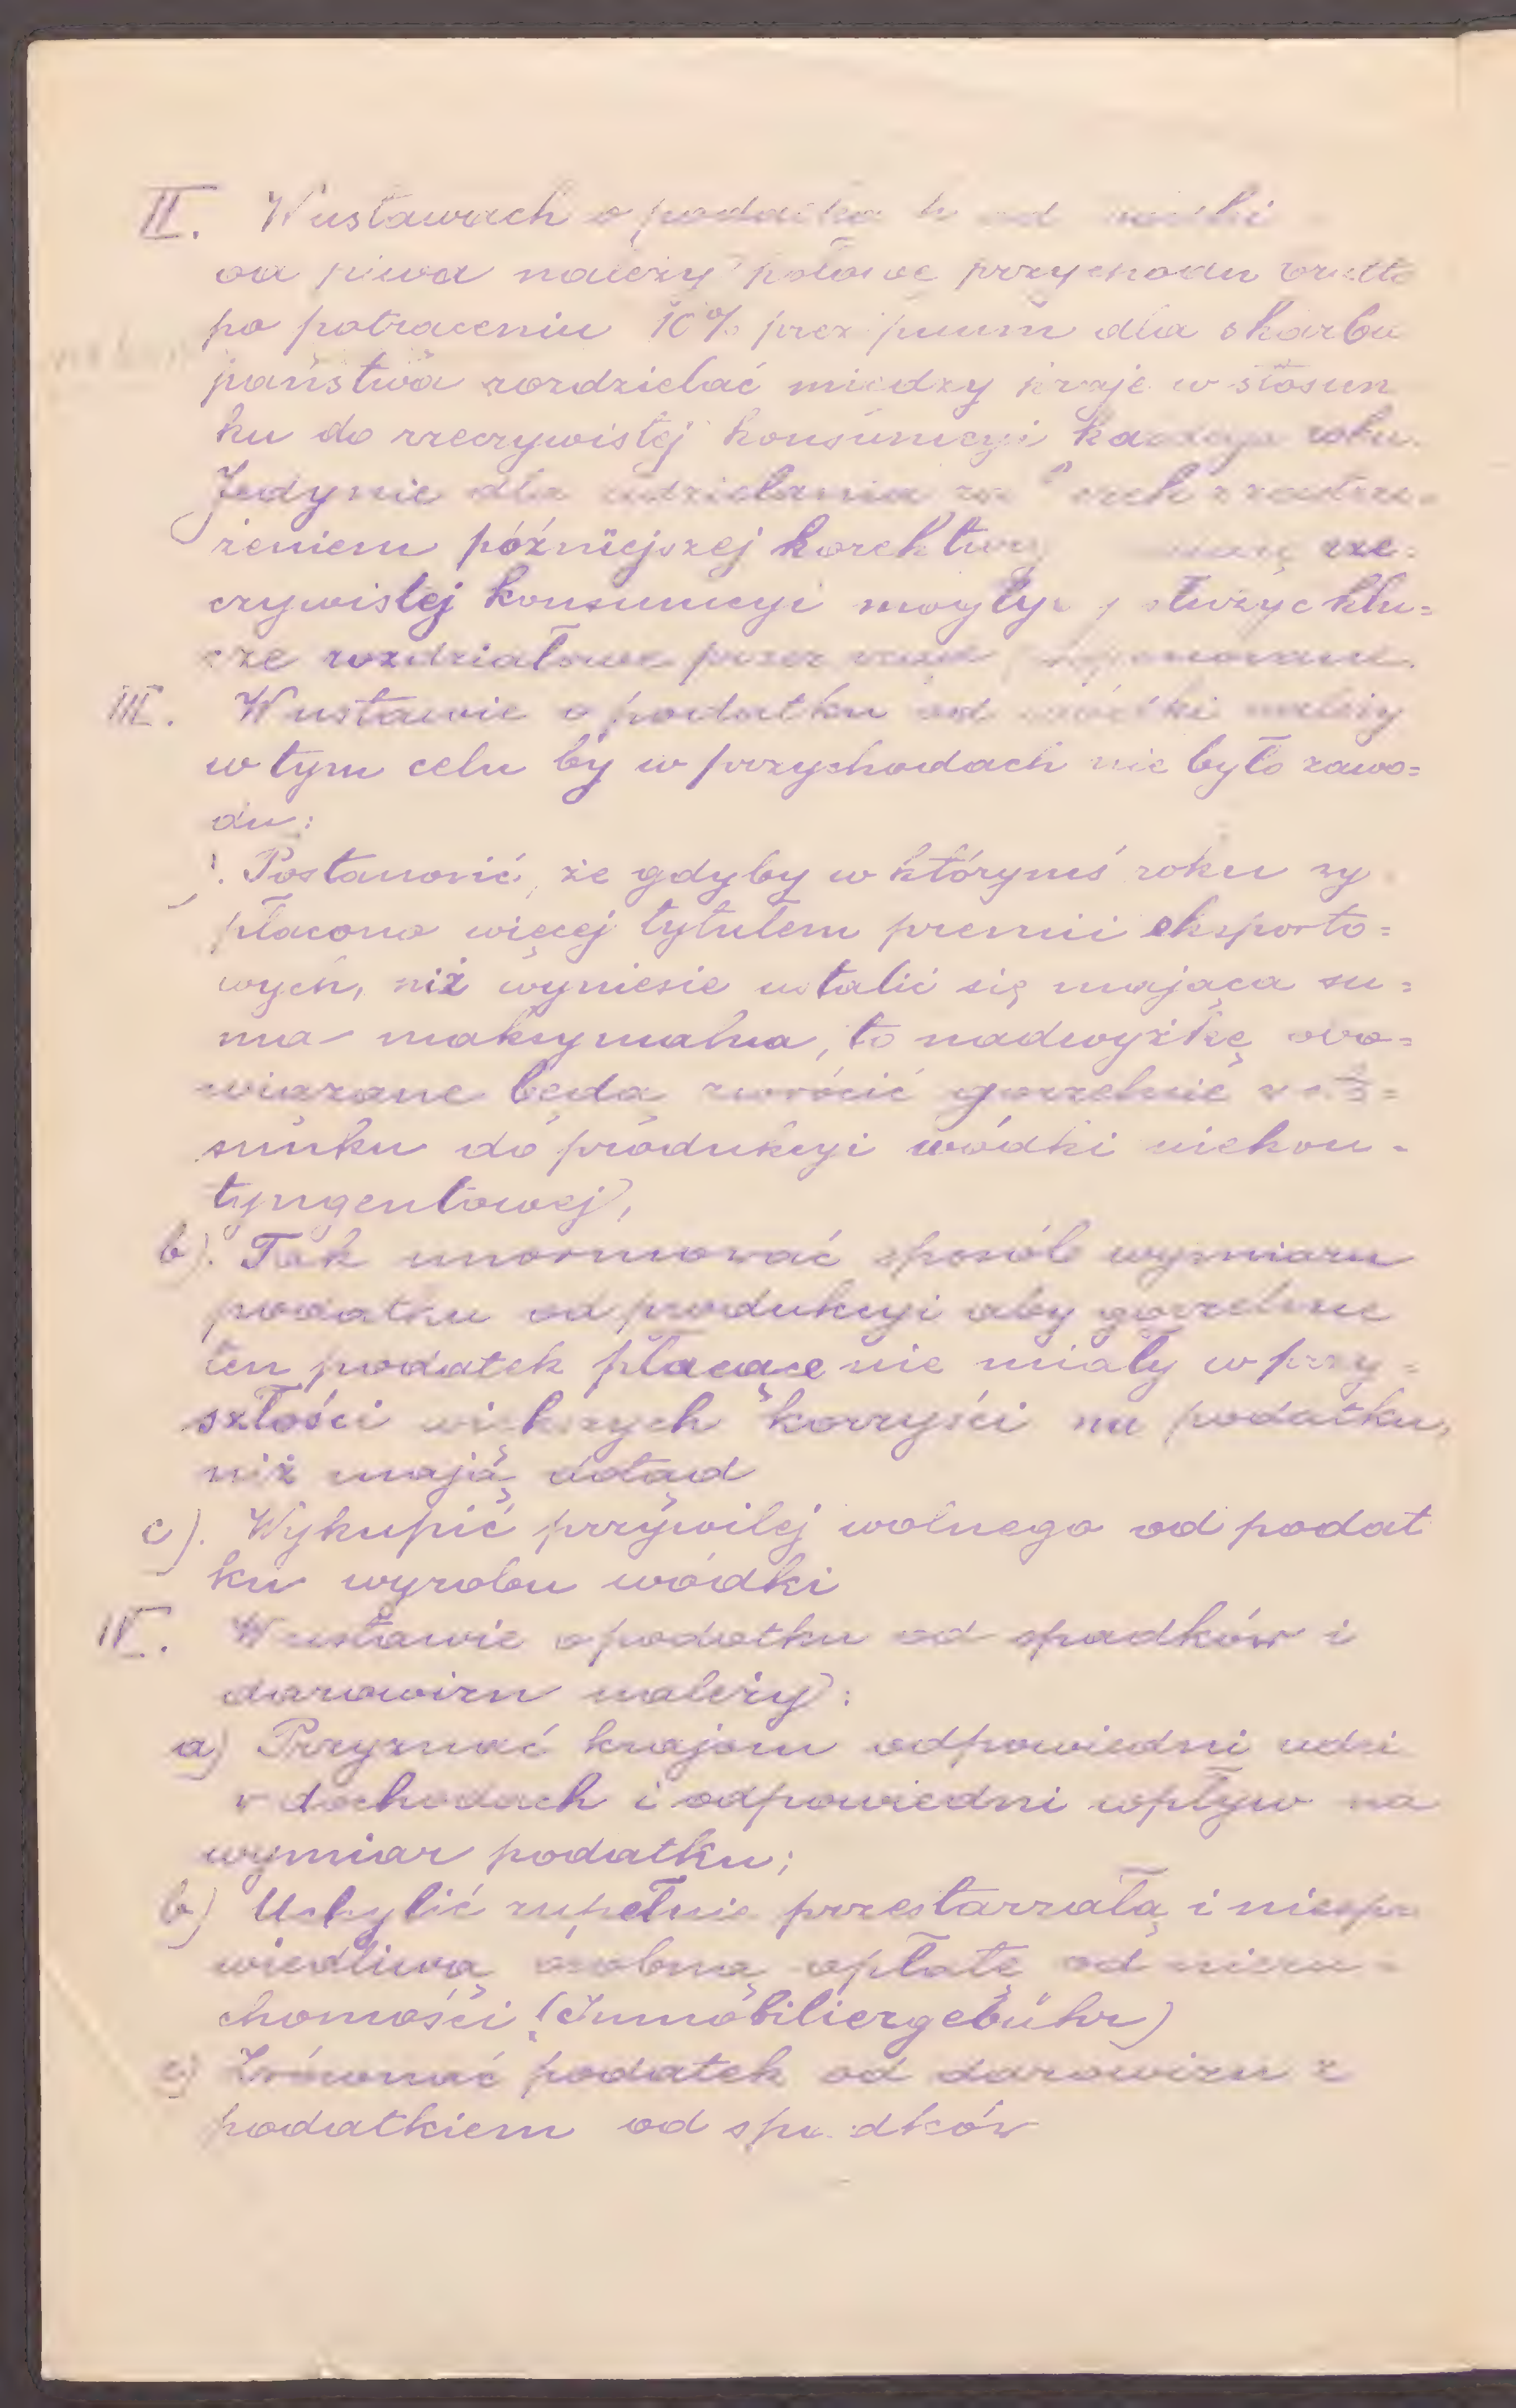 II. W ustawach o podatka h od wódki
od piwa należy połowę przychodu brutto
po potraceniu 10% prezipuum dla skarbu
państwa rozdzielać miedzy kraje w stosun
ku do rzeczywistej konsumcyi każdego roku.
Jedynie dla udzielania za
żeniem późniejszej korektury rze=
czywistej konsumcyi mogłyb służyć klu=
cze rozdziałowe przez rząd proponowane.
III. W ustawie o podatku od wódki należy
w tym celu by w przychodach nie było zawo=
du:
Postanowić, że gdyby w którymś roku wy
płacono więcej tytułem premii eksporto=
wych, niż wyniesie ustalić się mająca su=
ma maksymalna, to nadwyżkę obo=
wiązane będą zwrócić gorzelnie w sto=
sunku do produkcyi wódki niekon=
tyngentowej,
b). Tak unormować sposób wymiaru
podatku od produkcyi aby gorzelnie
ten podatek płacące nie miały w przy=
szłości większych korzyści na podatku,
niż mają dotąd
c). Wykupić przywilej wolnego od podat
ku wyrobu wódki
IV. W ustawie o podatku od spadków i
darowizn należy:
a) Przyznać krajom odpowiedni udzi
w dochodach i odpowiedni wpływ na
wymiar podatku;
b) Uchylić zupełnie przestarzałą i niespra
wiedliwą osobną opłatę od nieru=
chomości (Immobiliergebühr)
c) Zrównać podatek od darowizn z
podatkiem od spadków